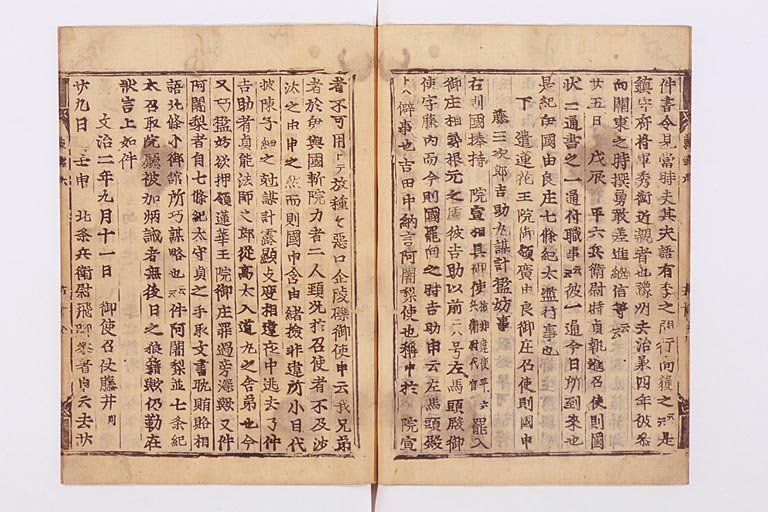 件書令見當時夫其夫語有李之間行向獲之云云是
鎮守府將軍秀衡近親者也豫州去治承四年被參
向關東之時撰勇敢差進繼信等云云
廿五日 戊辰 平六兵衛尉時貞執進召使則國
狀一通書之一通付職事云云彼一通今日所到來也
是紀伊國由良庄七條紀太濫行事也
下 遣蓮花王院御領廣由良御庄召使則國申
藤三次郎吉助丸謀計濫妨事
右則國捧持 院宣相具御使 罷入
御庄相尋根元之處彼吉助以前 号左馬頭殿御
使字藤内而今則國罷向之時吉助申云左馬頭殿
僻事也吉田中納言阿闍梨使也稱申於院宣
者不可用 放種々惡口金陵磯御使申云我兄弟
者於伊與國斬院力者二人頸況於召使者不及沙
汰之由申之然而則國申含由緒撿非違所小目代
披陳子細之尅謀計露顯支變相違夜中逃去了件
吉助者貞能法師之郎從高太入道丸之舎弟也今
又巧濫妨欲押領蓮華王院御庄罪過旁深歟又件
阿闍梨者自七條紀太守貞之手取文書耽賄賂相
語北條小御舘所巧謀略也云云件阿闍梨並七條紀
太召取院廳被加炳誡者無後日之狼籍歟仍勒在
狀言上如件
文治二年九月十一日 御使召仗藤井判
廿九日 壬申 北条兵衛尉飛脚參着申云去廿